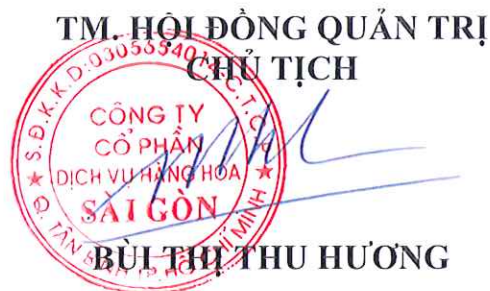 TM. HỘI ĐỒNG QUẢN TRỊ
CHỦ TỊCH
S.Đ.K.K.D:0305654014-C.T.C.P
CÔNG TY
CỔ PHẦN
DỊCH VỤ HÀNG HÓA
SÀI GÒN
Q. TÂN BÌNH T.P. HỒ CHÍ MINH
BÙI THỊ THU HƯƠNG